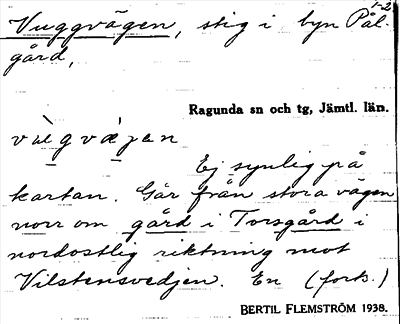 1-2
Vuggvägen, stig i byn Pål-
gård,
Ragunda sn och tg, Jämtl. län.
Ej synlig på
kartan. Går från stora vägen
norr om gård i Torsgård i
nordostlig riktning mot
Vilstensvedjen. En (forts.)
BERTIL FLEMSTRÖM 1938.